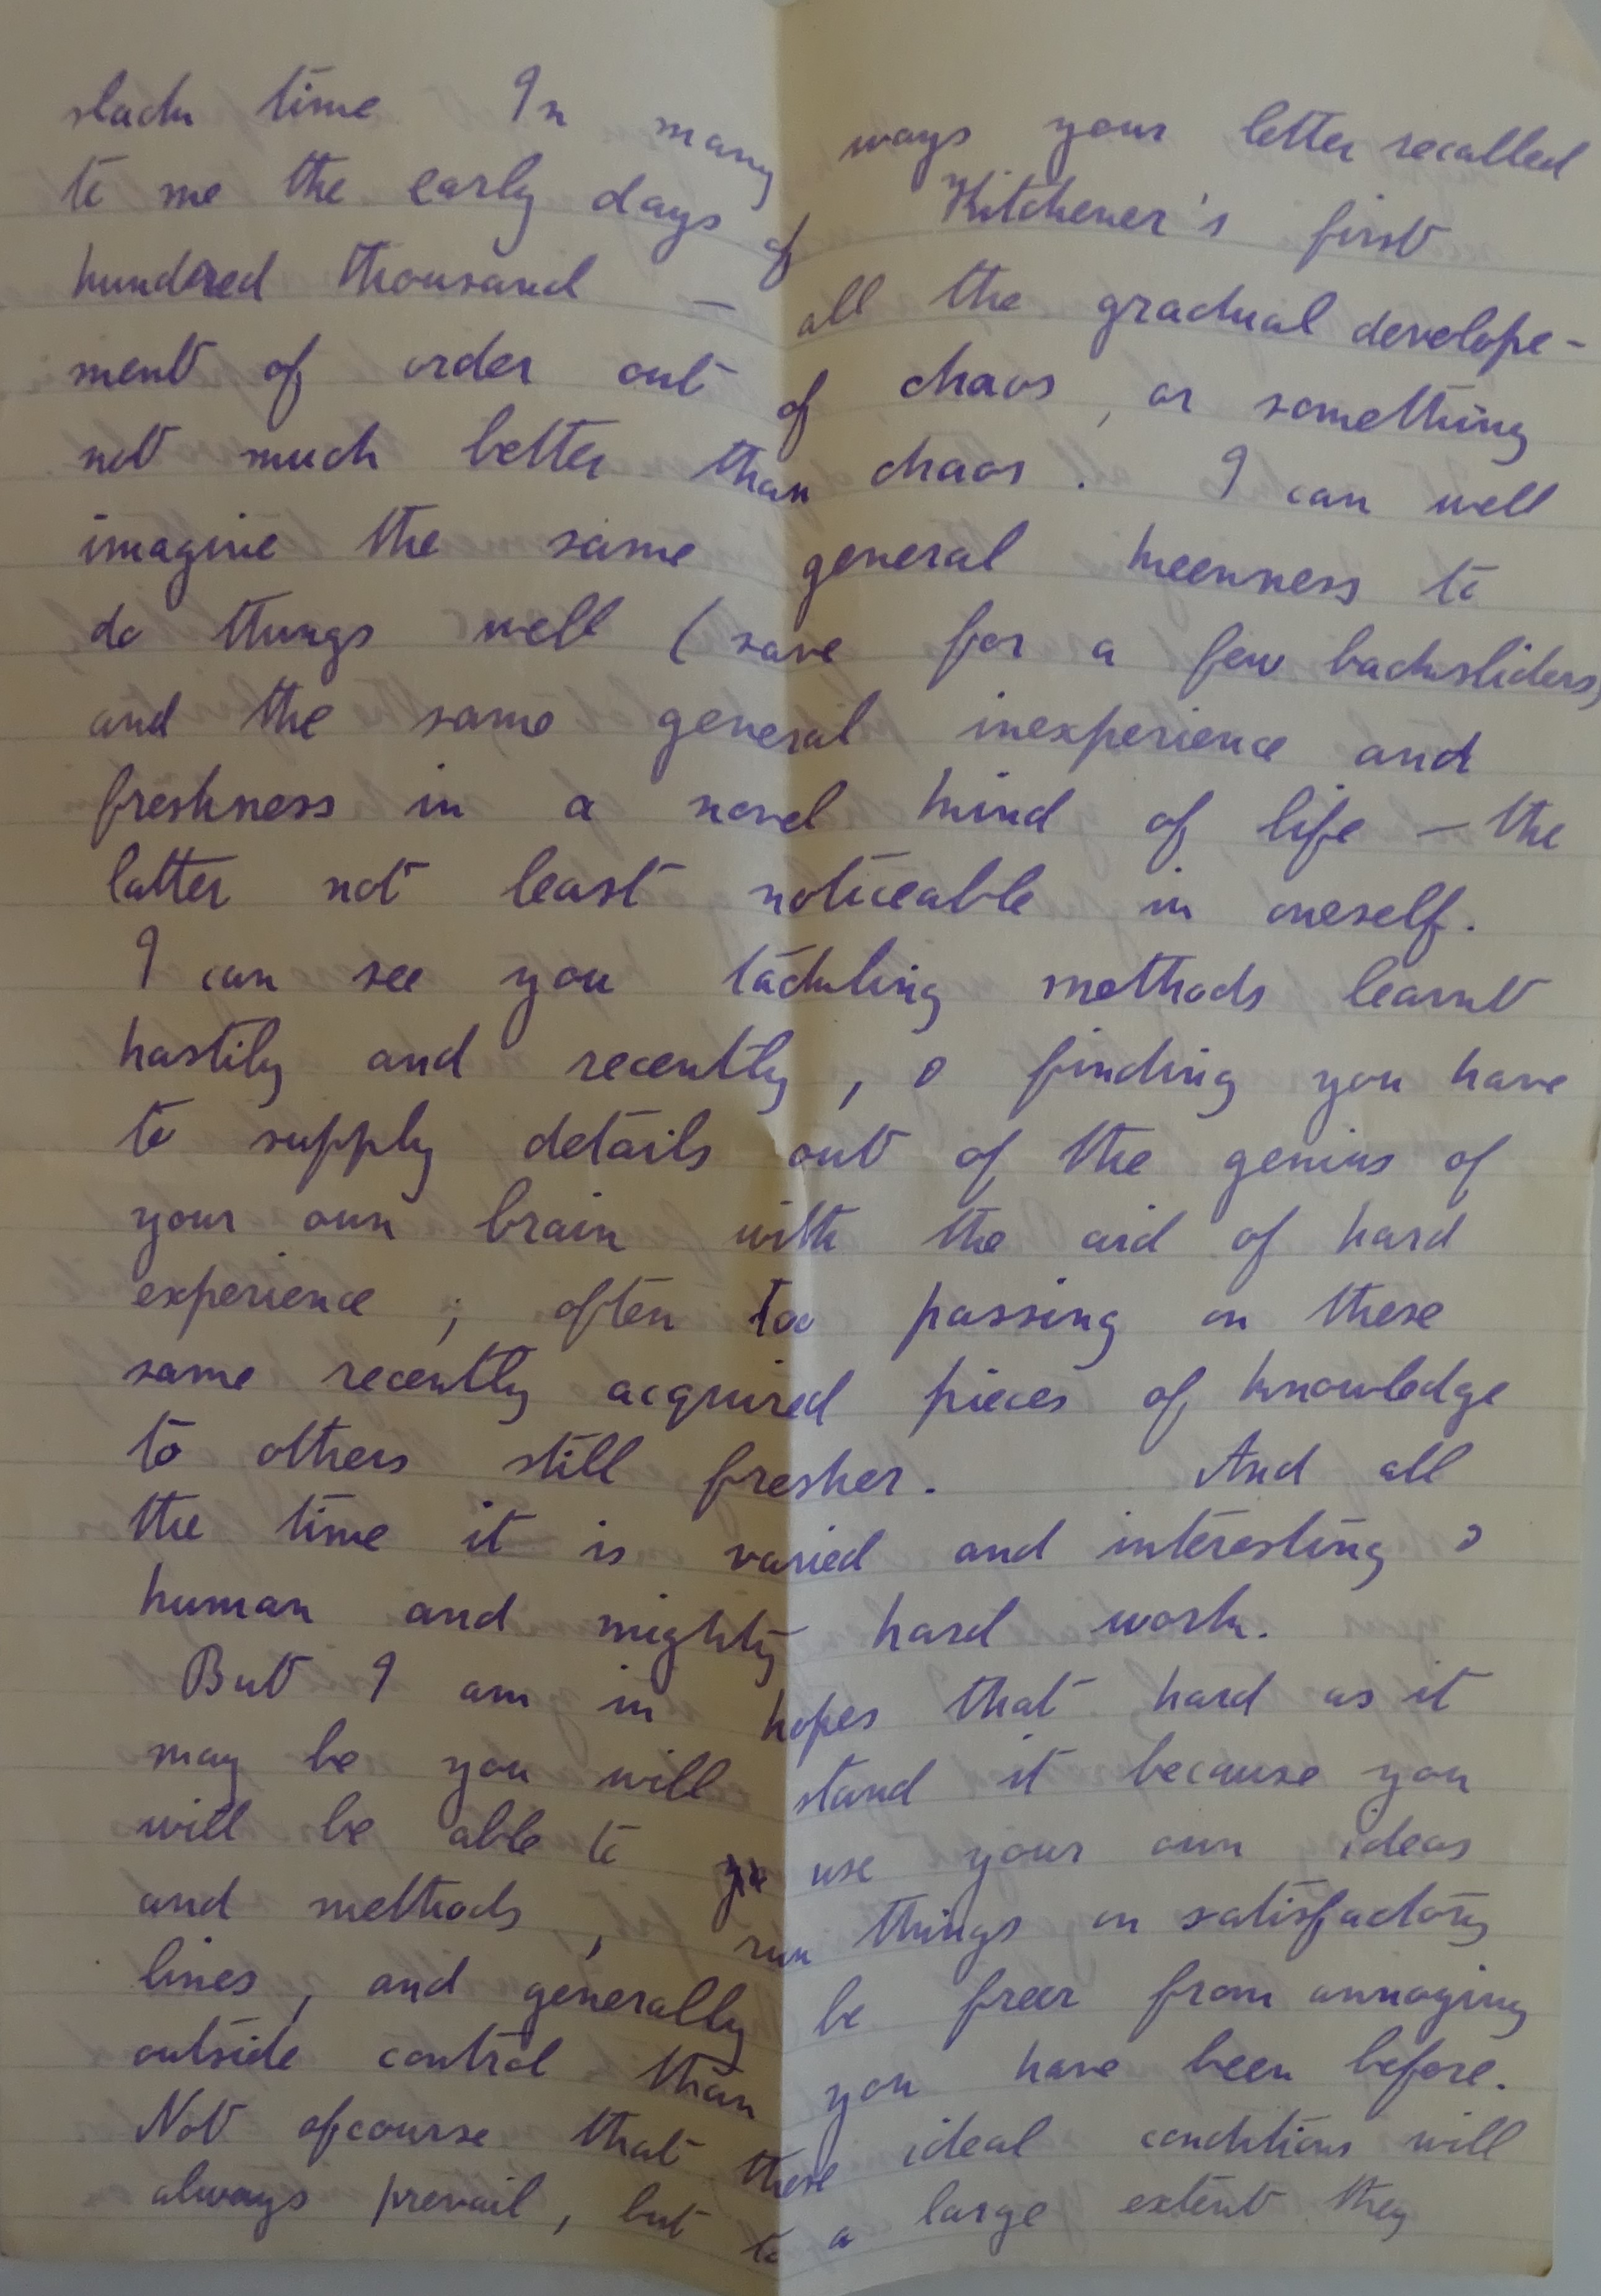 slack time In many ways your letter recalled
to me the early days of Kitchener's first
hundred thousand — all the gradual develope-
ment of order out of chaos, or something
not much better than chaos. I can well
imagine the same general keenness to
do things well (save for a few backsliders)
and the same general inexperience and
freshness in a novel kind of life — the
latter not least noticeable in oneself.
I can see you tackling methods learnt
hastily and recently, & finding you have
to supply details out of the genius of
your own brain with the aid of hard
experience; often too passing on these
same recently acquired pieces of knowledge
to others still fresher. And all
the time it is varied and interesting &
human and mighty hard work.
But I am in hopes that hard as it
may be you will stand it because you
will be able to use your own ideas
and methods, run things on satisfactory
lines, and generally be freer from annoying
outside control than you have been before.
Not ofcourse that these ideal conditions will
always prevail, but to a large extent they